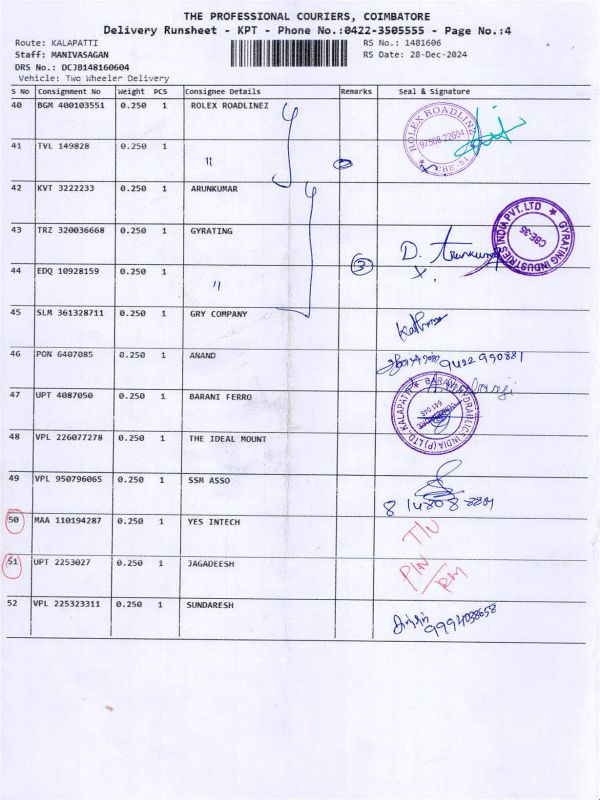 THE PROFESSIONAL COURIERS, COIMBATORE
Delivery Runsheet - KPT - Phone No.:0422-3505555 - Page No.:4
Route: KALAPATTI RS No.: 1481606
Staff: MANIVASAGAN RS Date: 28-Dec-2024
DRS No.: DCJB148160604
Vehicle: Two Wheeler Delivery
S No Consignment No Weight PCS Consignee Details Remarks Seal & Signature
40 BGM 400103551 0.250 1 ROLEX ROADLINEZ
ROLEX ROADLINZ
97508 22604
CBE-51
41 TVL 149828 0.250 1 "
42 KVT 3222233 0.250 1 ARUNKUMAR
43 TRZ 320036668 0.250 1 GYRATING
GYRATING INDUSTRIES INDIA PVT. LTD
CBE-35
D. Arunkumar
44 EDQ 10928159 0.250 1 " 3
45 SLM 361328711 0.250 1 GRY COMPANY
46 PON 6407085 0.250 1 ANAND 9422 990881
47 UPT 4087050 0.250 1 BARANI FERRO
BARANI HYDRAULICS INDIA (P) LTD, KALAPATTI
641 048
48 VPL 226077278 0.250 1 THE IDEAL MOUNT
49 VPL 950796065 0.250 1 SSM ASSO
50 MAA 110194287 0.250 1 YES INTECH
51 UPT 2253027 0.250 1 JAGADEESH P/N/RM
52 VPL 225323311 0.250 1 SUNDARESH